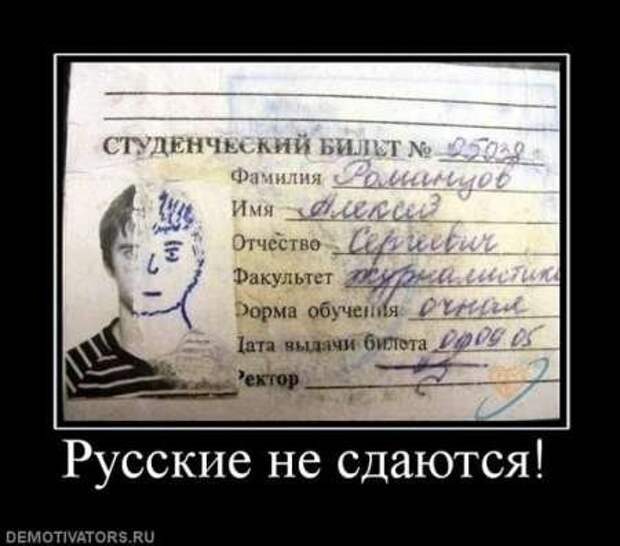 СТУДЕНЧЕСКИЙ БИЛЕТ №
Фамилия Романцов
Имя Алексей
Отчество Сергеевич
Факультет журналистики
Форма обучения очная
Дата выдачи билета 05
Ректор
Русские не сдаются!
DEMOTIVATORS.RU